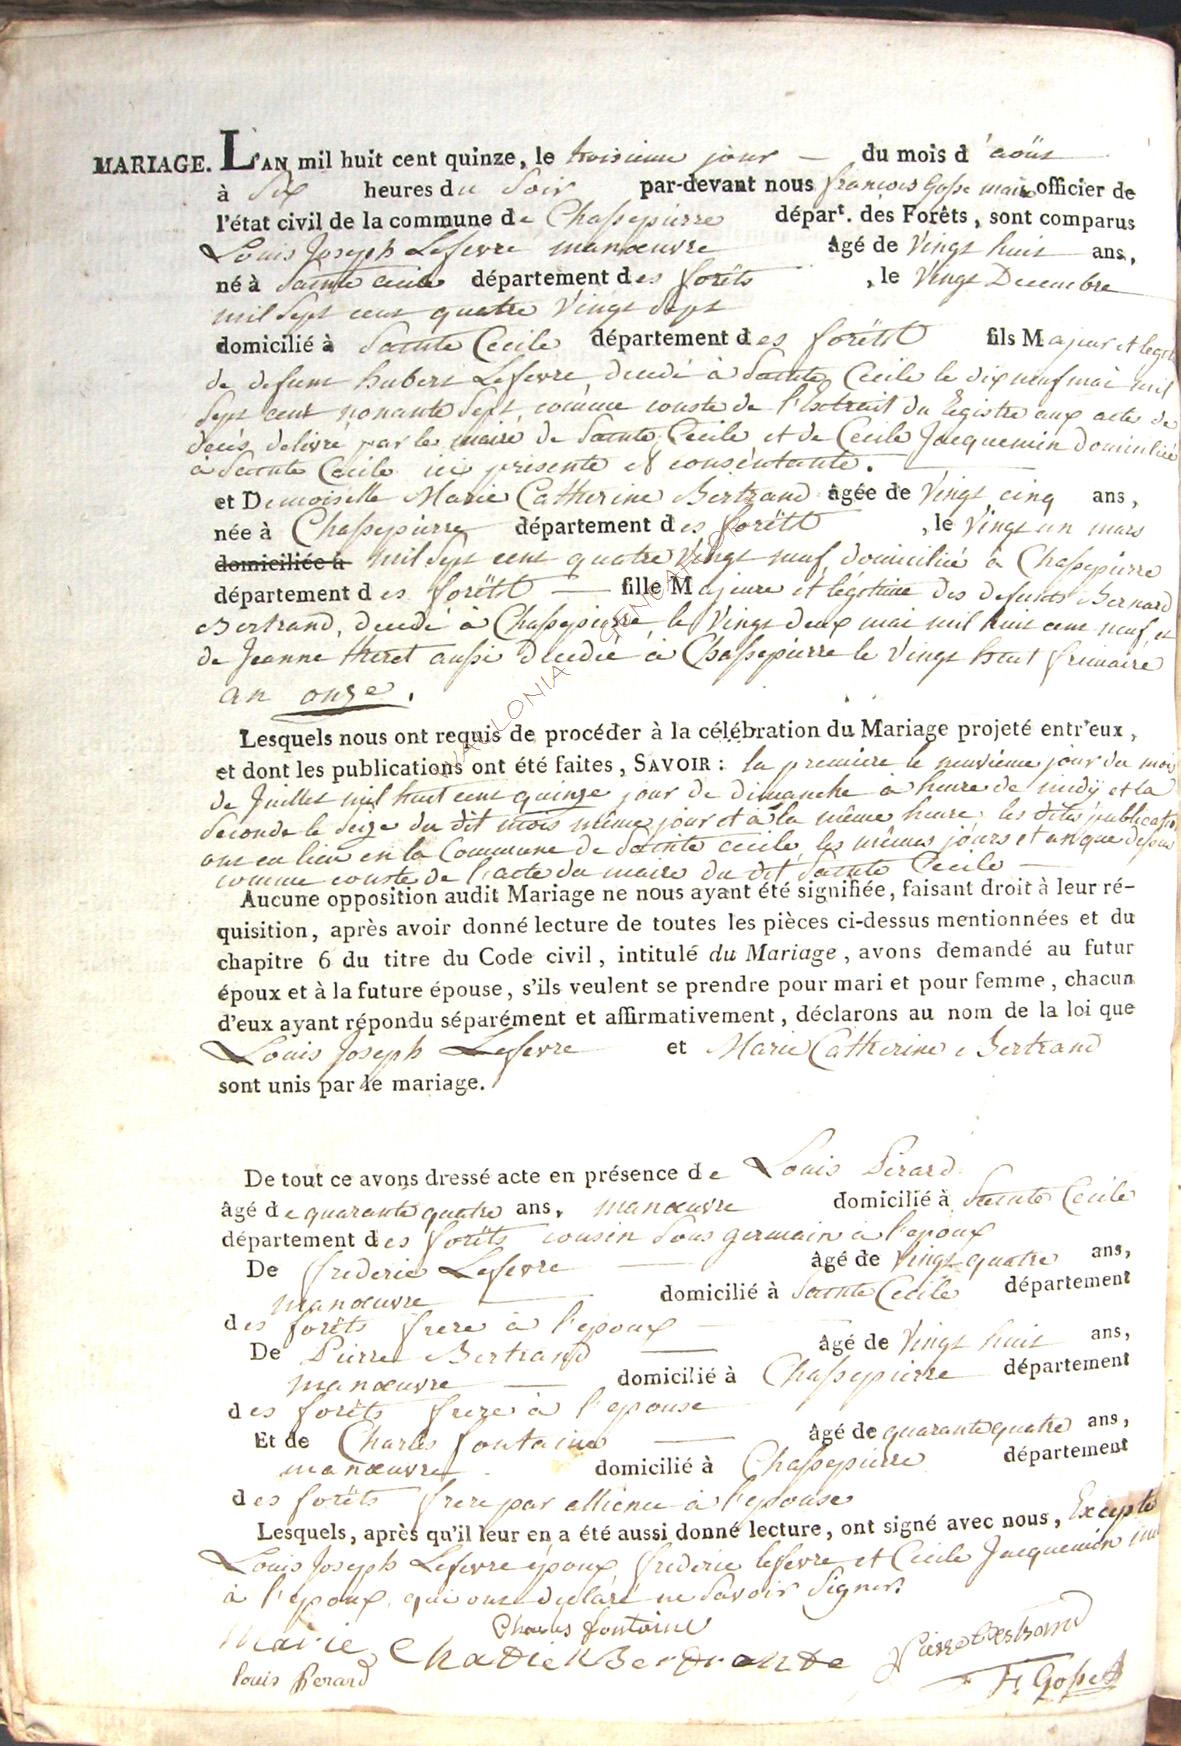 MARIAGE. L'AN mil huit cent quinze, le troisieme jour — du mois d'aoüst
à Six heures du Soir par-devant nous françois Gosse maire officier de
l'état civil de la commune de Chassepierre départ. des Forêts, sont comparus
Louis Joseph Lefevre manœuvre âgé de Vingt huit ans,
né à Sainte Cecile département des forêts, le Vingt Decembre
mil Sept cent quatre Vingt Sept
domicilié à Sainte Cecile département des forêtst fils Majeur et legit
de defunt hubert Lefevre, decedé à Sainte Cecile le dix neuf mai mil
Sept cent nonante Sept, comme conste de l'Extrait du Registre aux actes de
decés, delivré par le maire de Sainte Cecile et de Cecile Jacquemin domiciliée
à Sainte Cecile ici presente et consentante.
et Demoiselle Marie Catherine Bertrand âgée de Vingt cinq ans,
née à Chassepierre département des forêtst, le Vingt un mars
domiciliée à mil Sept cent quatre Vingt neuf, domiciliée à Chassepierre
département des forêtst — fille Majeure et légitime des defunts Bernard
Bertrand, decedé à Chassepierre, le Vingt deux mai mil huit cent neuf, et
de Jeanne theret aussi decedée à Chassepierre le Vingt huit frimaire
an onze.
Lesquels nous ont requis de procéder à la célébration du Mariage projeté entr'eux,
et dont les publications ont été faites, SAVOIR: la premiere le neuvieme jour du mois
de Juillet mil huit cent quinze jour de dimanche à heure de midÿ et la
Seconde le Seize du dit mois même jour et à la même heure, les dites publicatio
ont eu lieu en la Commune de Sainte Cecile les mêmes jours et an que dessus
comme conste de l'acte du maire du dit Sainte Cecile —
Aucune opposition audit Mariage ne nous ayant été signifiée, faisant droit à leur ré-
quisition, après avoir donné lecture de toutes les pièces ci-dessus mentionnées et du
chapitre 6 du titre du Code civil, intitulé du Mariage, avons demandé au futur
époux et à la future épouse, s'ils veulent se prendre pour mari et pour femme, chacun
d'eux ayant répondu séparément et affirmativement, déclarons au nom de la loi que
Louis Joseph Lefevre et Marie Catherine Bertrand
sont unis par le mariage.
De tout ce avons dressé acte en présence de Louis Perard
âgé de quarante quatre ans, manœuvre domicilié à Sainte Cecile
département des forêts cousin Sous germain à l'epoux
De frederic Lefevre — âgé de Vingt quatre ans,
manœuvre — domicilié à Sainte Cecile département
des forêts frere à l'epoux —
De Pierre Bertrand — âgé de Vingt huit ans,
manœuvre — domicilié à Chassepierre département
des forêts frere à l'epouse
Et de Charles fontaine — âgé de quarante quatre ans,
manœuvre domicilié à Chassepierre département
des forêts frere par allience à l'epouse
Lesquels, après qu'il leur en a été aussi donné lecture, ont signé avec nous, Excepté
Louis Joseph Lefevre époux, frederic lefevre et Cecile Jacquemin
à l'epoux, qui ont declaré ne Savoir Signer.
Charles fontaine
Marie Bertrand Pierre Bertrand
louis Perard F. Gosse
WALLONIA GENEALOGY